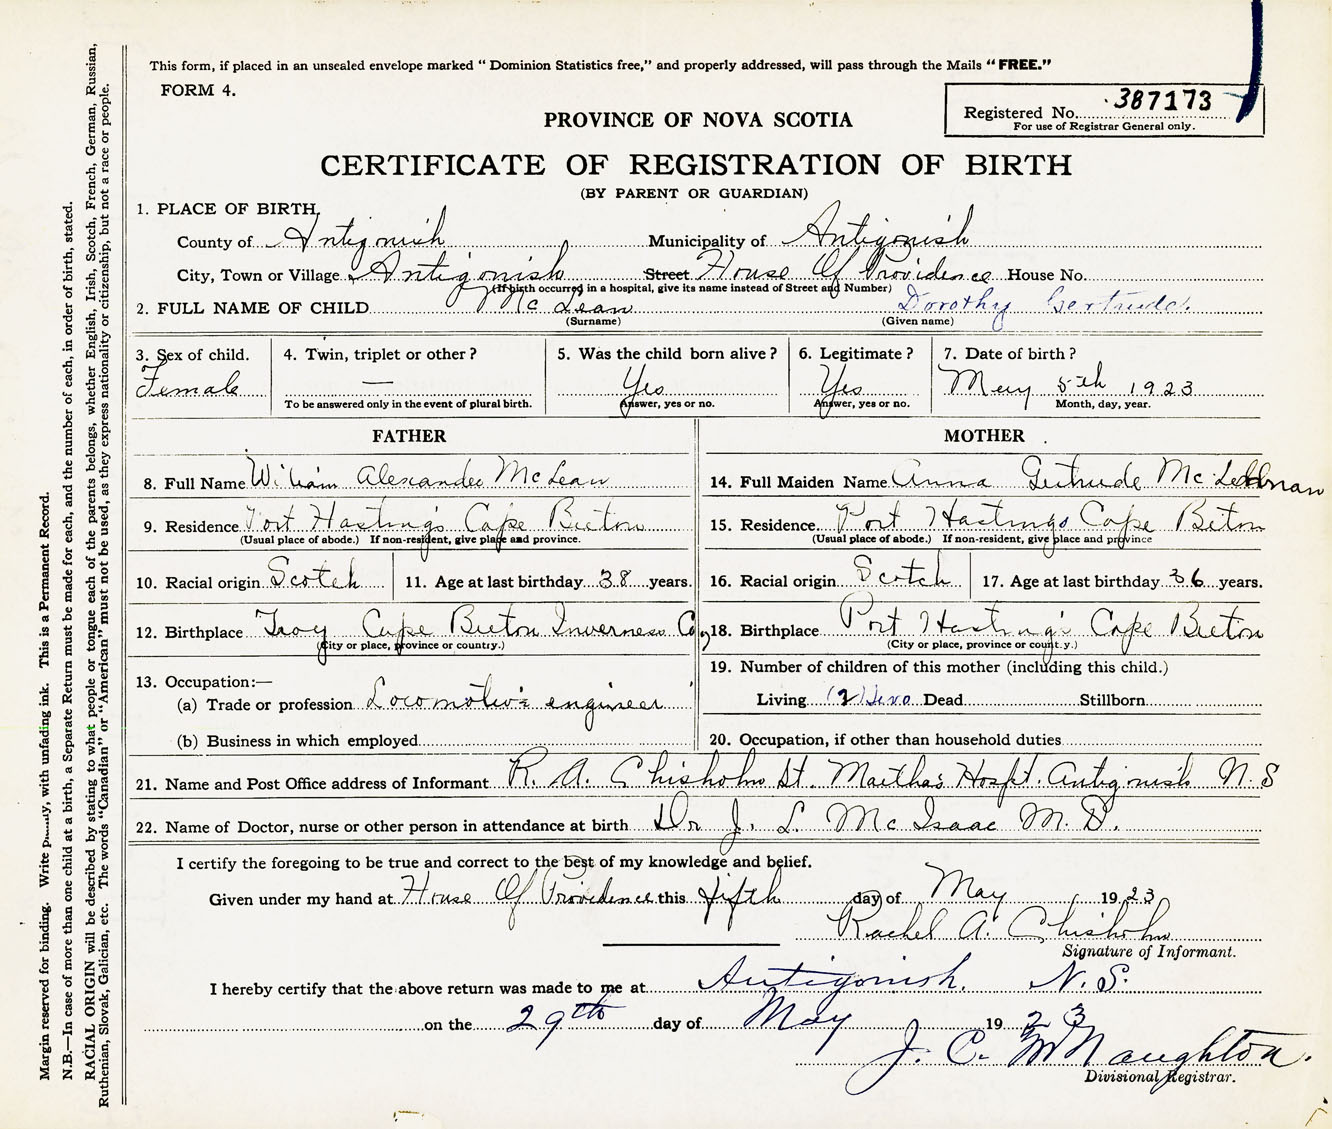 This form, if placed in an unsealed envelope marked “Dominion Statistics free,” and properly addressed, will pass through the Mails “FREE.”
FORM 4.
Registered No. 387173
For use of Registrar General only.
PROVINCE OF NOVA SCOTIA
CERTIFICATE OF REGISTRATION OF BIRTH
(BY PARENT OR GUARDIAN)
1. PLACE OF BIRTH,
County of Antigonish Municipality of Antigonish
City, Town or Village Antigonish Street House Of Providence House No.
(If birth occurred in a hospital, give its name instead of Street and Number)
2. FULL NAME OF CHILD McLean Dorothy Gertrude.
(Surname) (Given name)
3. Sex of child. 4. Twin, triplet or other? 5. Was the child born alive? 6. Legitimate? 7. Date of birth?
Female — Yes Yes May 5th 1923
To be answered only in the event of plural birth. Answer, yes or no. Answer, yes or no. Month, day, year.
FATHER MOTHER
8. Full Name William Alexander McLean 14. Full Maiden Name Anna Gertrude Mc
9. Residence Port Hastings Cape Breton 15. Residence. Port Hastings Cape Breton
(Usual place of abode.) If non-resident, give place and province. (Usual place of abode.) If non-resident, give place and province
10. Racial origin Scotch 11. Age at last birthday 38 years. 16. Racial origin Scotch 17. Age at last birthday 36 years.
12. Birthplace Troy Cape Breton Inverness Co, 18. Birthplace Port Hastings Cape Breton
(City or place, province or country.) (City or place, province or count.y.)
13. Occupation:—
(a) Trade or profession Locomotive engineer
(b) Business in which employed
19. Number of children of this mother (including this child.)
Living (2) two Dead Stillborn
20. Occupation, if other than household duties
21. Name and Post Office address of Informant R. A. Chisholm St. Martha's Hospt. Antigonish N. S
22. Name of Doctor, nurse or other person in attendance at birth Dr J. L. McIsaac M. D.
I certify the foregoing to be true and correct to the best of my knowledge and belief.
Given under my hand at House Of Providence this fifth day of May 1923
Rachel A. Chisholm
Signature of Informant.
I hereby certify that the above return was made to me at Antigonish. N. S.
on the 29th day of May 1923
J. C. McNaughton.
Divisional Registrar.
Margin reserved for binding. Write with unfading ink. This is a Permanent Record.
N.B.—In case of more than one child at a birth, a Separate Return must be made for each, and the number of each, in order of birth, stated.
RACIAL ORIGIN will be described by stating to what people or tongue each of the parents belongs, whether English, Irish, Scotch, French, German, Russian,
Ruthenian, Slovak, Galician, etc. The words “Canadian” or “American” must not be used, as they express nationality or citizenship, but not a race or people.